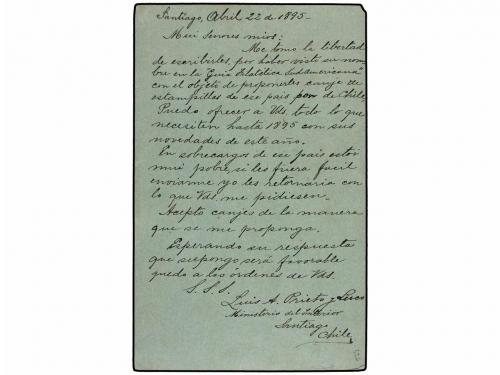 Santiago, Abril 22 de 1895-
Mui señores mios:
Me tomo la libertad
de escribirles, por haber visto su nom-
bre en la "Guia Filatélica Sudamericana"
con el objeto de proponerles canje de
estampillas de ese pais por de Chile,
Puedo ofrecer a Vds. todo lo que
necesiten hasta 1895 con sus
novedades de este año.
En sobrecargos de ese pais estoi
mui pobre, si les fuera facil
enviarme yo les retornaria con
lo que Vds. me pidiesen.
Acepto canjes de la manera
que se me proponga.
Esperando su respuesta
que supongo será favorable
quedo a las órdenes de Vds.
S. S. S.
Luis A. Prieto y Luco
Ministerio del Interior
Santiago
Chile